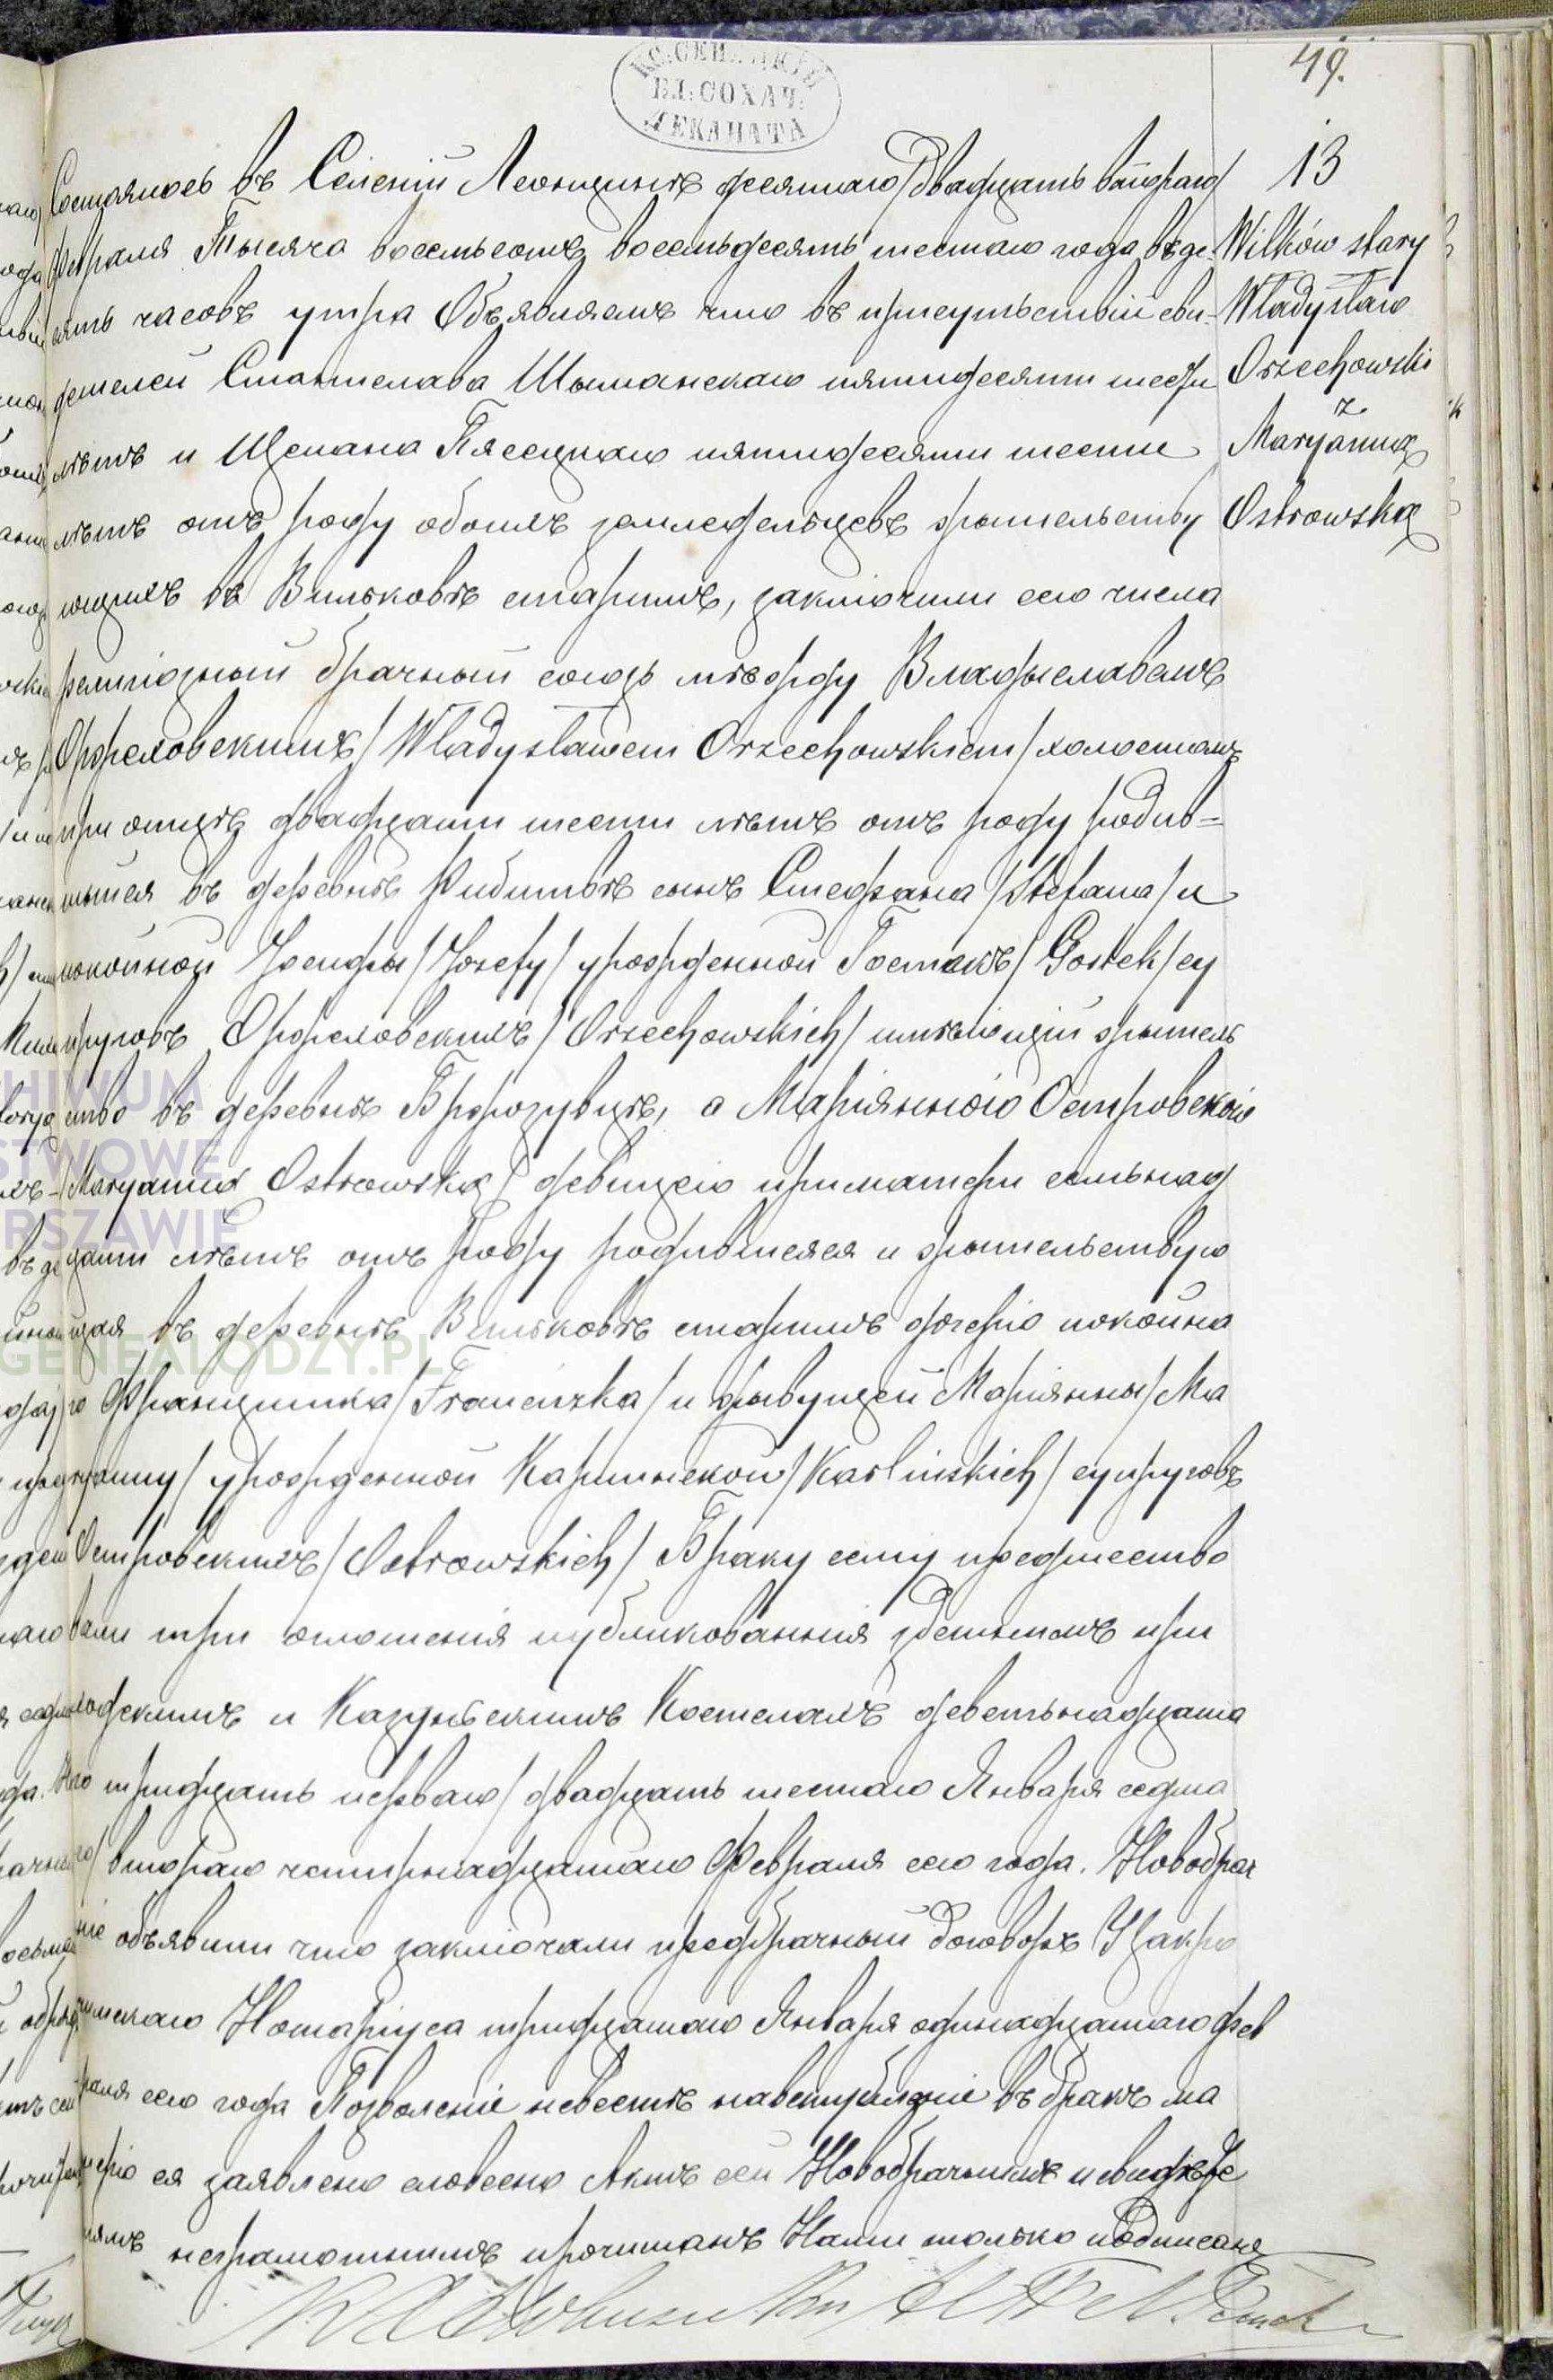 49.
КС. СЕН
БЛ. СОХАЧ.
ДЕКАНАТА
13
Wilków stary
Władysław
Orzechowski
z
Maryanną
Ostrowską
Состоялось въ Селеніи Леонцинѣ десятаго/двадцать втораго/
Февраля Тысяча восемьсотъ восемьдесятъ шестаго года въ де-
сять часовъ утра Объявляемъ что въ присутствіи сви-
детелей Станислава Шыманскаго пятидесяти
лѣтъ и Щепана Пясецкаго пятидесяти шести
лѣтъ отъ роду обоихъ земледельцевъ жительству
ющихъ въ Вильковѣ старымъ, заключили сего числа
религіозный брачный союзъ мѣжду Владыславемъ
Оржеховскимъ/Władysławem Orzechowskiem/холостымъ
при отцѣ двадцати шести лѣтъ отъ роду родив=
шыйся въ деревнѣ Рибитвѣ сынъ Стефана/Stefana/и
покойной Юзефы/Józefy/урожденной Гостекъ/Gostek/су
пруговъ Оржеховскихъ/Orzechowskich/имѣющій житель
ство въ деревнѣ Бржозувцѣ, а Маріянною Островскою
/Maryanną Ostrowską/девицею при матери семьнад
цати лѣтъ отъ роду родившеяся и жительствую
щая въ деревнѣ Вильковѣ старымъ дочерію покойна
го Францишка/Franciszka/и живущей Маріянны/Ma
ryanny/урожденной Карлинской/Karlinskich/супруговъ
Островскихъ/Ostrowskich/Браку сему предшество
вали три оглошенія публикованныя здешнимъ при
ходскимъ и Казунскимъ Костелахъ девятьнадцата
го тридцать перваго/двадцать шестаго Января седма
го/втораго четырнадцатаго Февраля сего года. Новобрач
ніе объявили что заключали предбрачный договоръ У Закро
чимскаго Нотаріуса тридцатаго Января одинадцатаго Фев
раля сего года Позволеніе невестѣ на вступленіе въ бракъ ма
терію ея заявлено словесно Актъ сей Новобрачнымъ и свидѣте
лямъ неграмотнымъ прочитанъ Нами только подписанъ